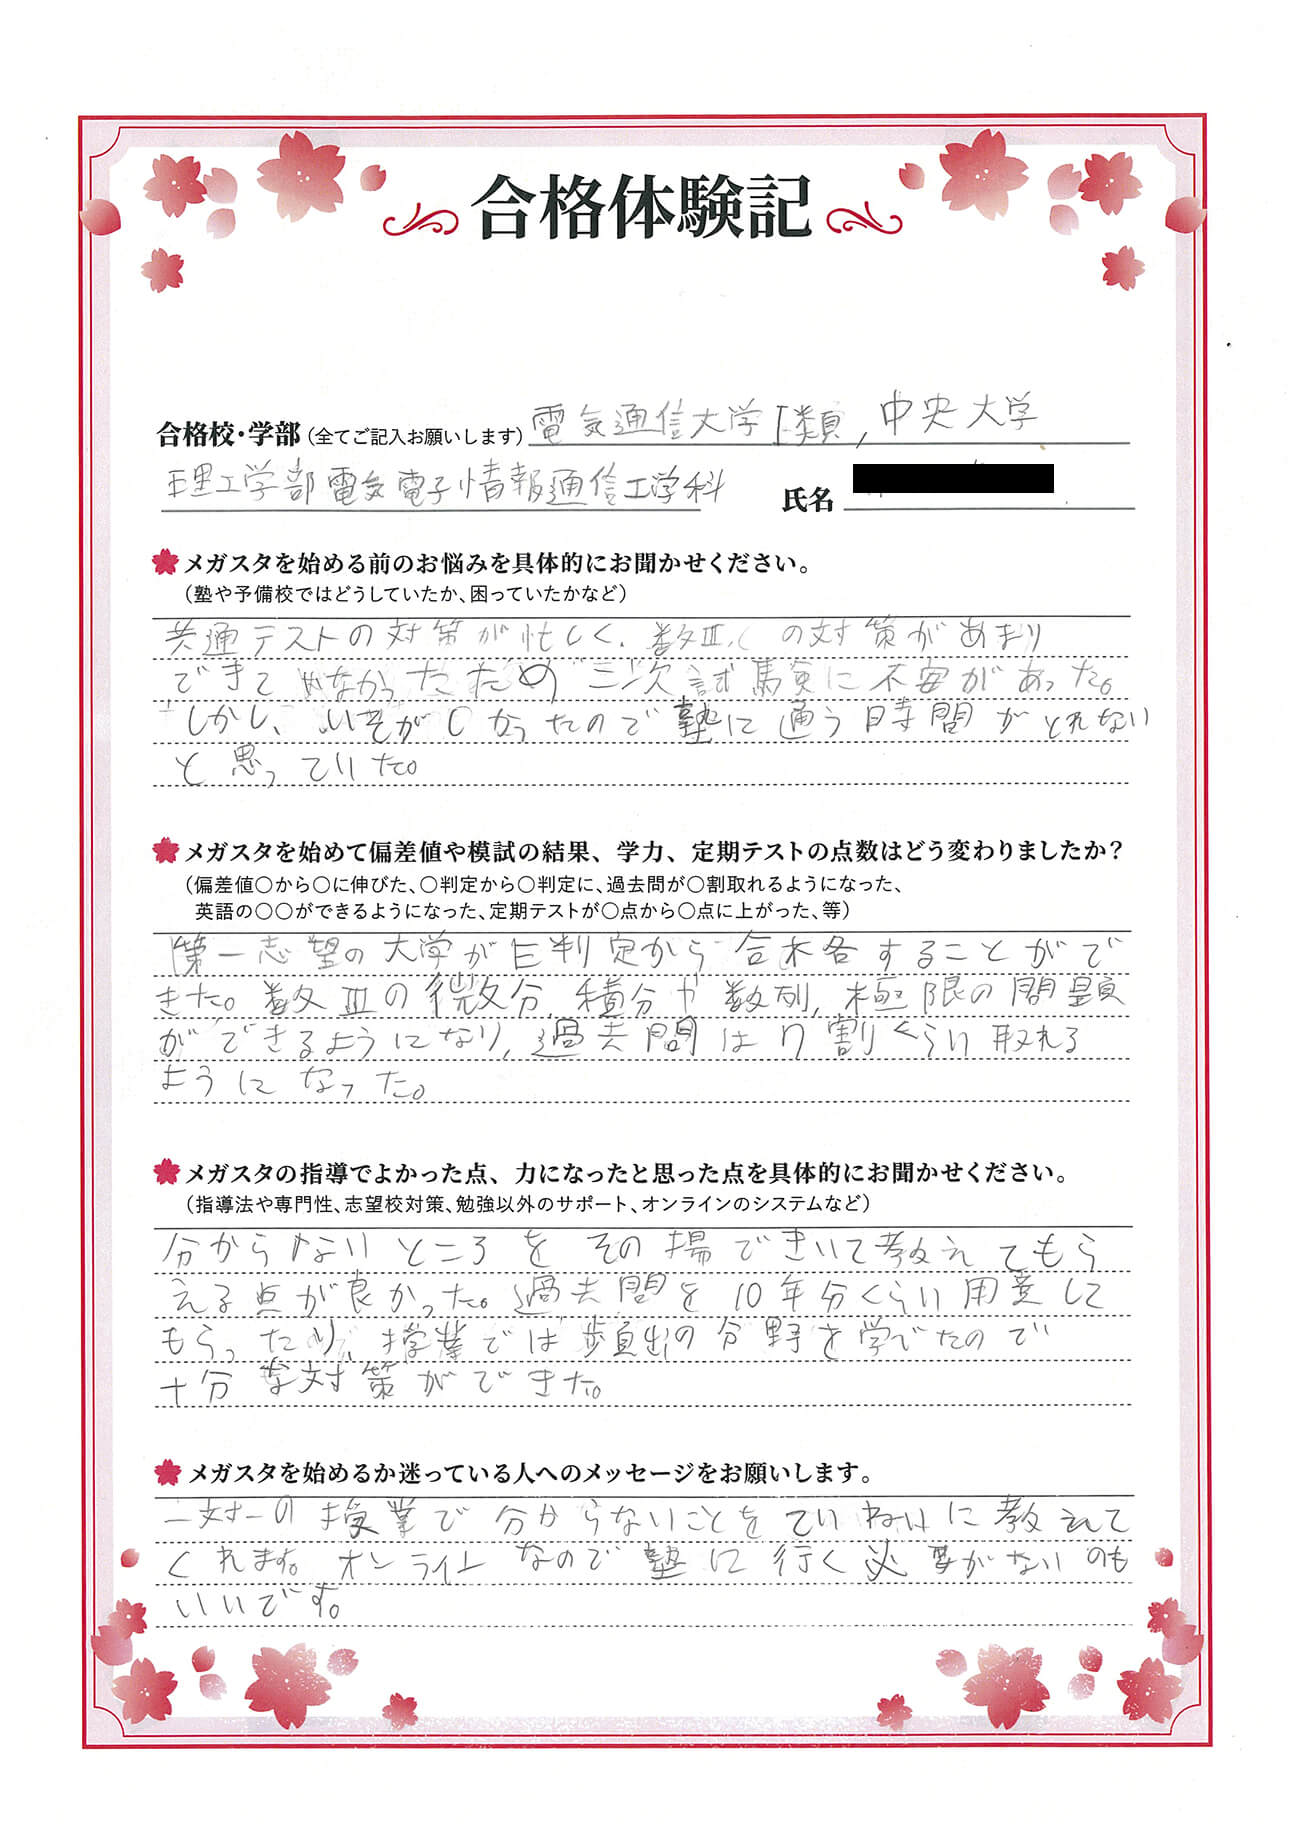 合格体験記
合格校・学部(全てご記入お願いします) 電気通信大学I類,中央大学
理工学部電気電子情報通信工学科
氏名
メガスタを始める前のお悩みを具体的にお聞かせください。
(塾や予備校ではどうしていたか、困っていたかなど)
共通テストの対策が忙しく、数Ⅲ,Cの対策があまり
できていなかったため二次試験に不安があった。
しかし、いそがしかったので塾に通う時間がとれない
と思っていた。
メガスタを始めて偏差値や模試の結果、学力、定期テストの点数はどう変わりましたか?
(偏差値〇から〇に伸びた、〇判定から〇判定に、過去問が〇割取れるようになった、
英語の〇〇ができるようになった、定期テストが〇点から〇点に上がった、等)
第一志望の大学がE判定から合格することがで
きた。数Ⅲの微分,積分や数列,極限の問題
ができるようになり,過去問は7割くらい取れる
ようになった。
メガスタの指導でよかった点、力になったと思った点を具体的にお聞かせください。
(指導法や専門性、志望校対策、勉強以外のサポート、オンラインのシステムなど)
分からないところをその場できいて教えてもら
える点が良かった。過去問を10年分くらい用意して
もらったり、授業では頻出の分野を学べたので
十分な対策ができた。
メガスタを始めるか迷っている人へのメッセージをお願いします。
一対一の授業で分からないことをていねいに教えて
くれます。オンラインなので塾に行く必要がないのも
いいです。